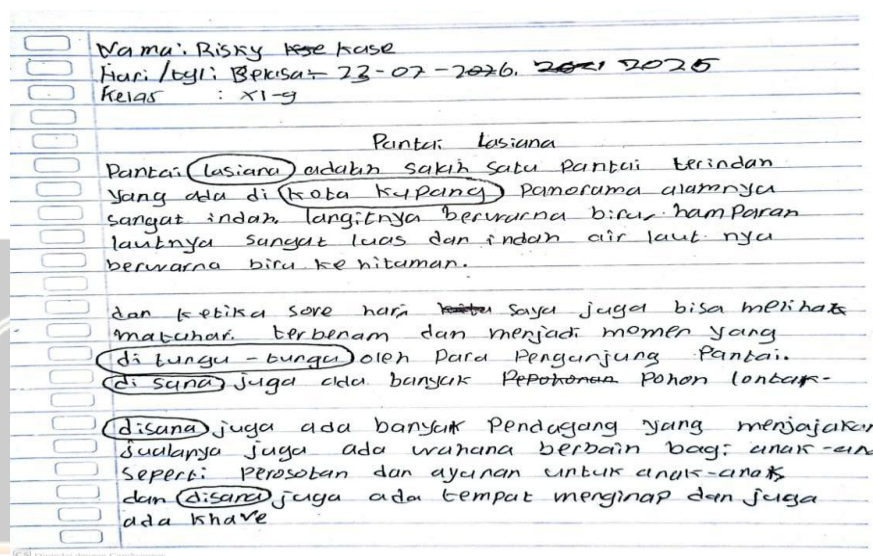 Nama: Risky Kase
Hari/tgl: 23-07-2026. 2025
Kelas : XI-g
Pantai Lasiana
Pantai lasiana adalah salah satu Pantai terindah
yang ada di kota kupang Panorama alamnya
sangat indah langitnya berwarna biru, hamParan
lautnya sangat luas dan indah air laut nya
berwarna biru ke hitaman.
dan ketika sore hari saya juga bisa melihat
matahari terbenam dan menjadi momen yang
di tungu-tungu oleh Para Pengunjung Pantai.
di sana juga ada banyak Pepohonan Pohon lontar-
disana juga ada banyak Pendagang yang menjajakan
Jualanya juga ada wahana berbain bagi anak-an
seperti Perosotan dan ayunan untuk anak-anak
dan disana juga ada tempat menginap dan juga
ada Khave